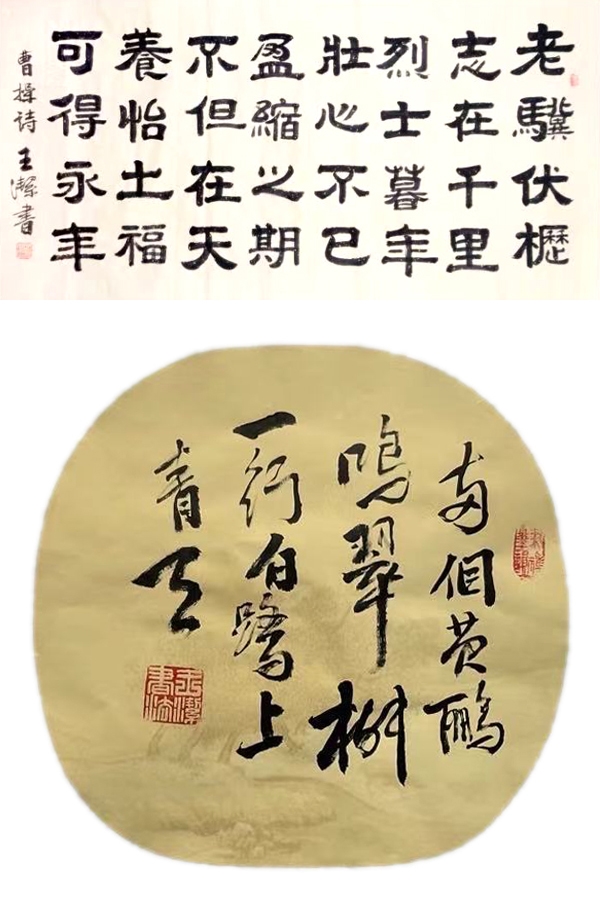 老驥伏櫪
志在千里
烈士暮年
壯心不已
盈縮之期
不但在天
養怡土福
可得永年
曹操诗 王潔書
两個黄鸝
鳴翠柳
一行白鷺上
青天
王潔書法